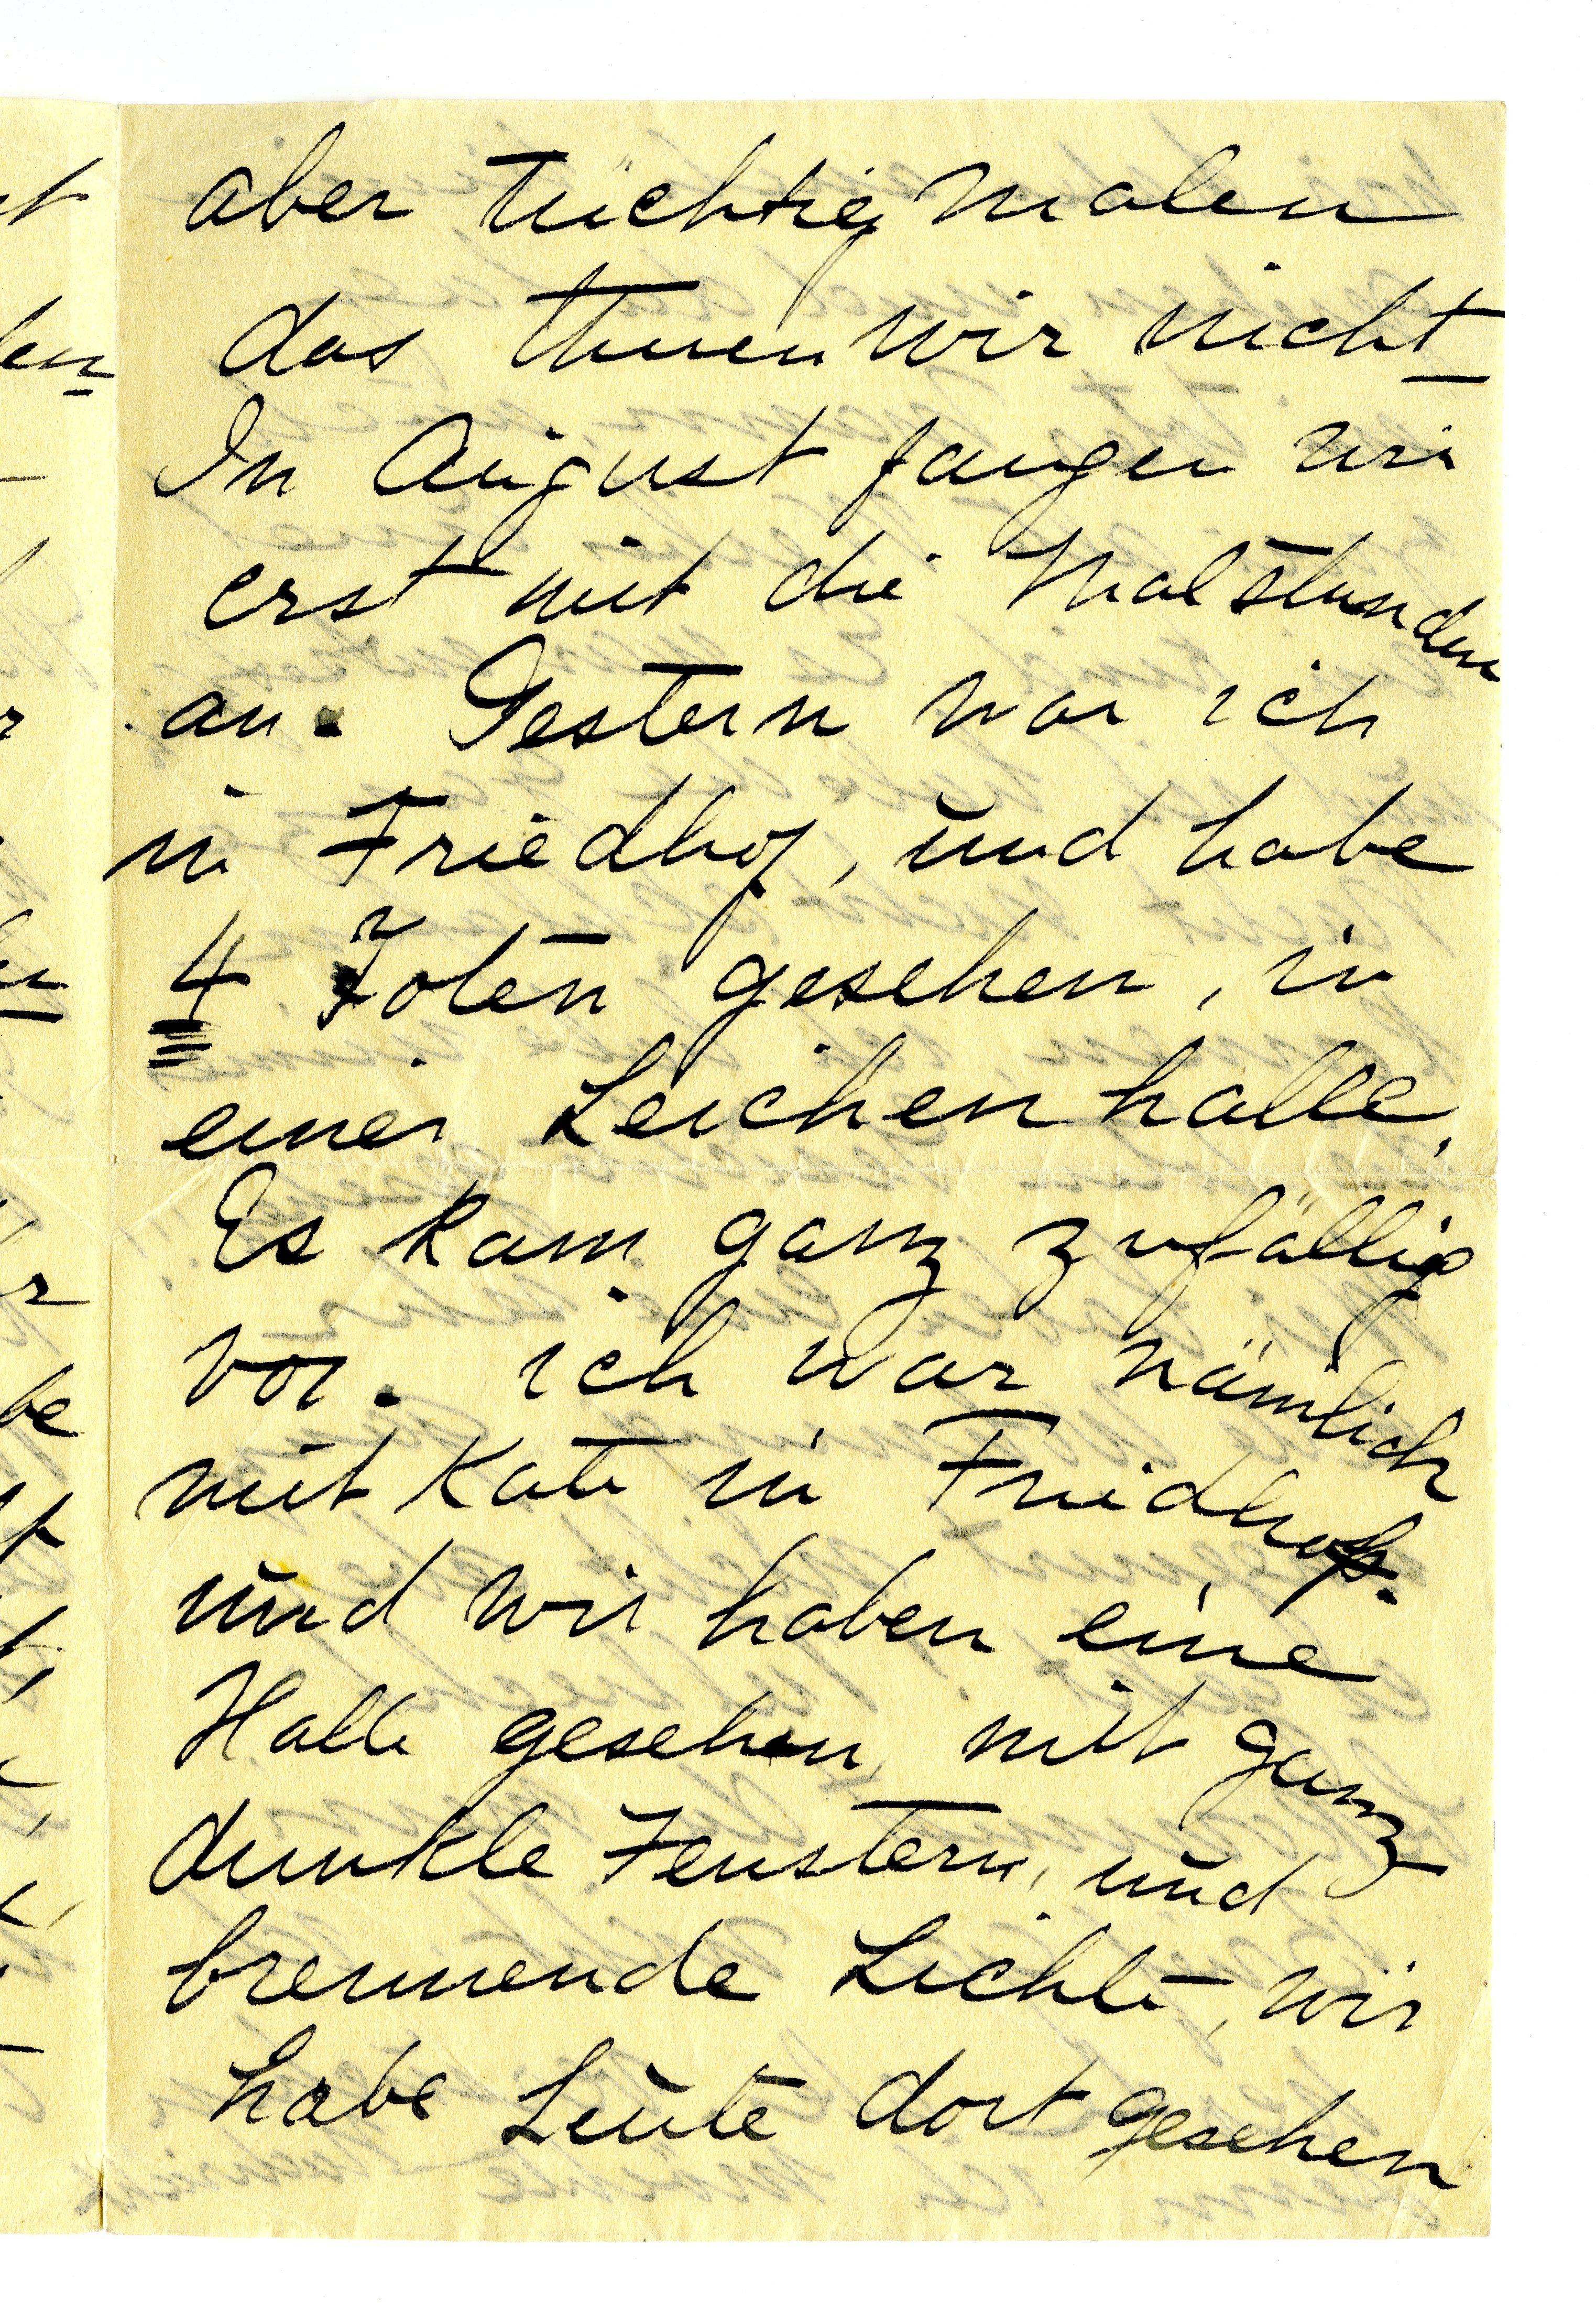 aber tüchtig malen
das thuen wir nicht
In August fangen wir
erst mit die Malstunden
an. Gestern war ich
in Friedhof, und habe
4 Toten gesehen, in
einer Leichenhalle,
Es kam ganz zufällig
vor. ich war nämlich
mit Kati in Friedhof.
und wir haben eine
Halle gesehen, mit ganz
dunkle Fenstern, und
brennende Lichte, wir
habe Leute dort gesehen